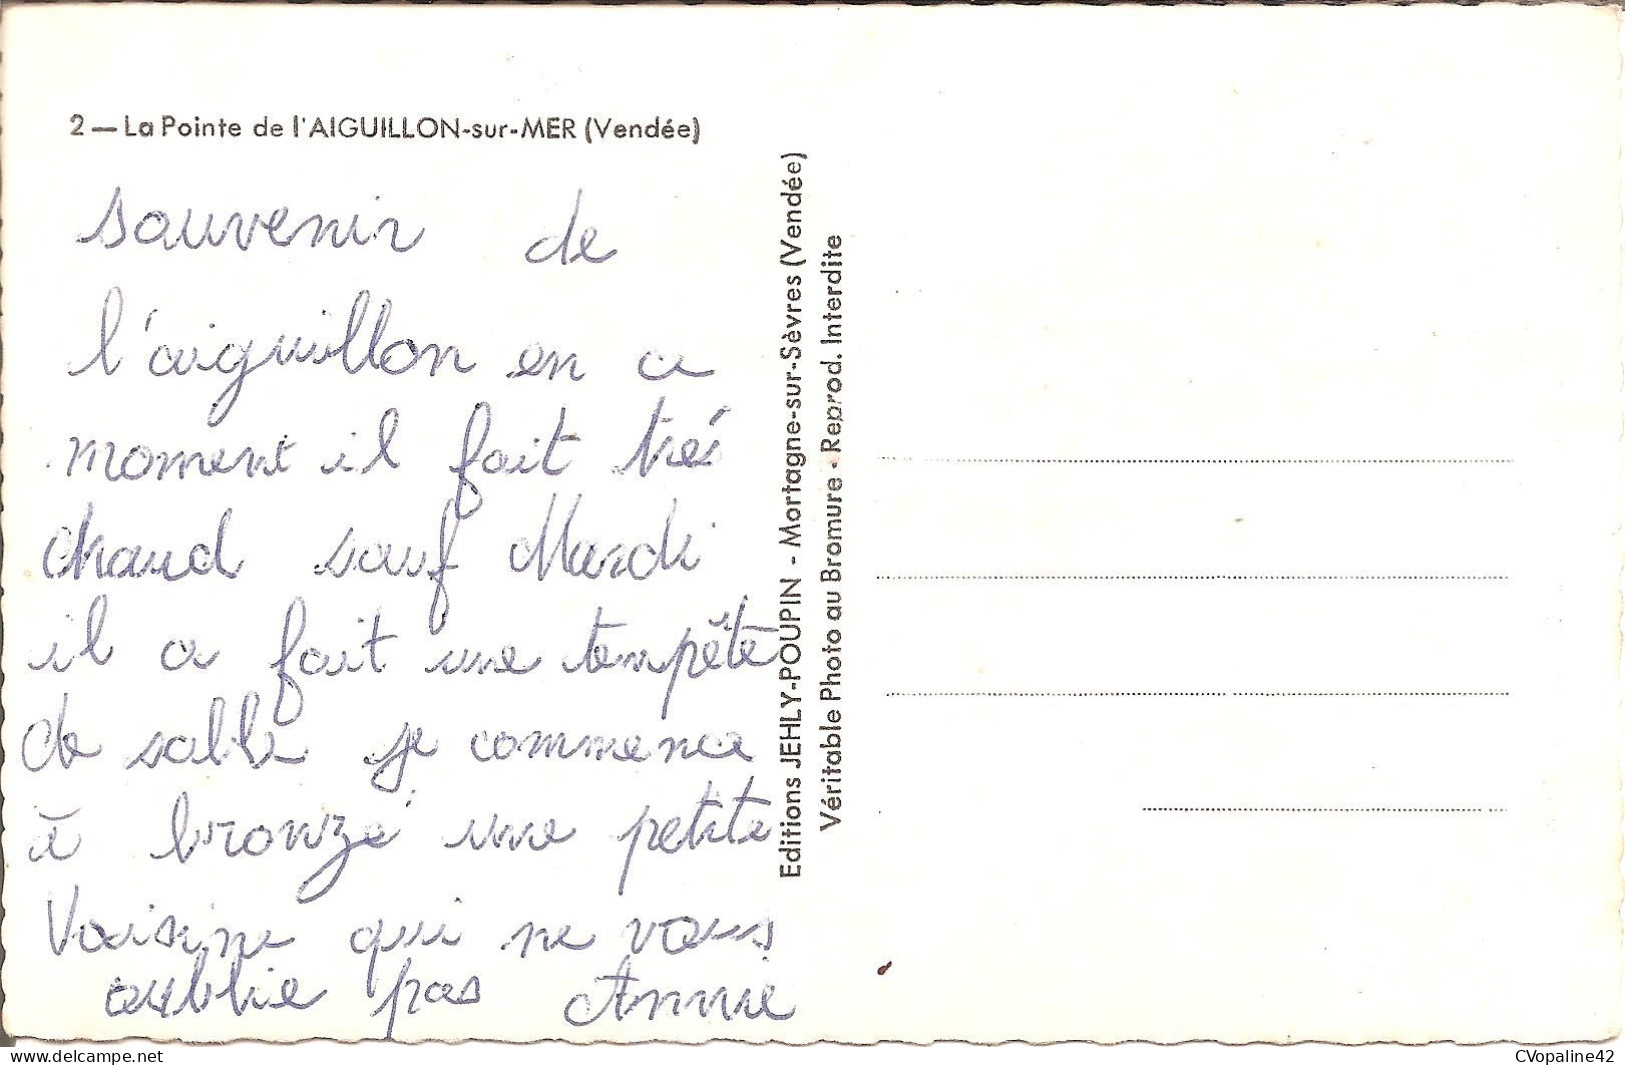 2 — La Pointe de l'AIGUILLON-sur-MER (Vendée)
souvenir de
l'aiguillon en a
moment il fait tré
chaud sauf Mardi
il a fait une tempête
de sable je commence
à bronzé une petite
Voisine qui ne vous
oublie pas Annie
Editions JEHLY-POUPIN - Mortagne-sur-Sèvres (Vendée)
Véritable Photo au Bromure - Reprod. Interdite
www.delcampe.net
CVopaline42